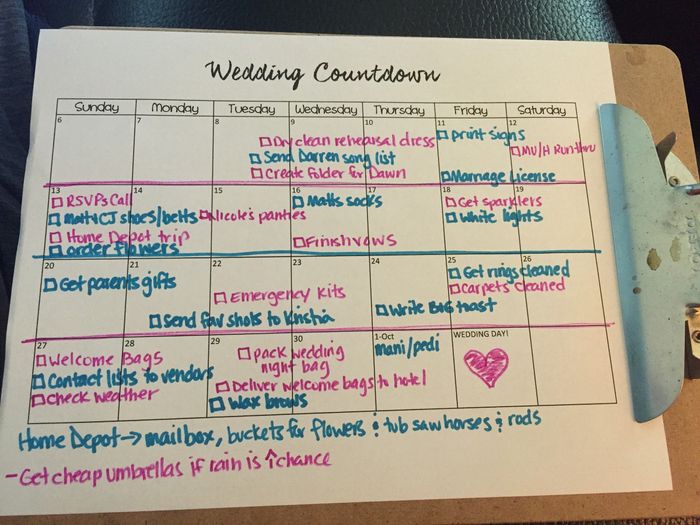 Wedding Countdown
Sunday Monday Tuesday Wednesday Thursday Friday Saturday
6 7 8 9 10 11 12
☐ Dry clean rehearsal dress
☐ print signs
☐ Send Darren song list
☐ MU/H Run thru
☐ Create Folder for Dawn
☐ Marriage License
13 14 15 16 17 18 19
☐ RSVPs Call
☐ Matt's socks
☐ Get sparklers
☐ Matt & CJ shoes/belts
☐ Nicole's panties
☐ White lights
☐ Home Depot trip
☐ Finish vows
☐ order flowers
20 21 22 23 24 25 26
☐ Get parents gifts
☐ Get rings cleaned
☐ Emergency Kits
☐ Carpets cleaned
☐ Send fav shots to Kristia
☐ Write B&G toast
27 28 29 30 1-Oct WEDDING DAY!
☐ Welcome Bags
☐ pack wedding night bag
mani/pedi
☐ Contact lists to vendors
☐ Deliver welcome bags to hotel
☐ Check weather
☐ Wax brows
Home Depot → mailbox, buckets for flowers & tub saw horses & rods
- Get cheap umbrellas if rain is ↑ chance